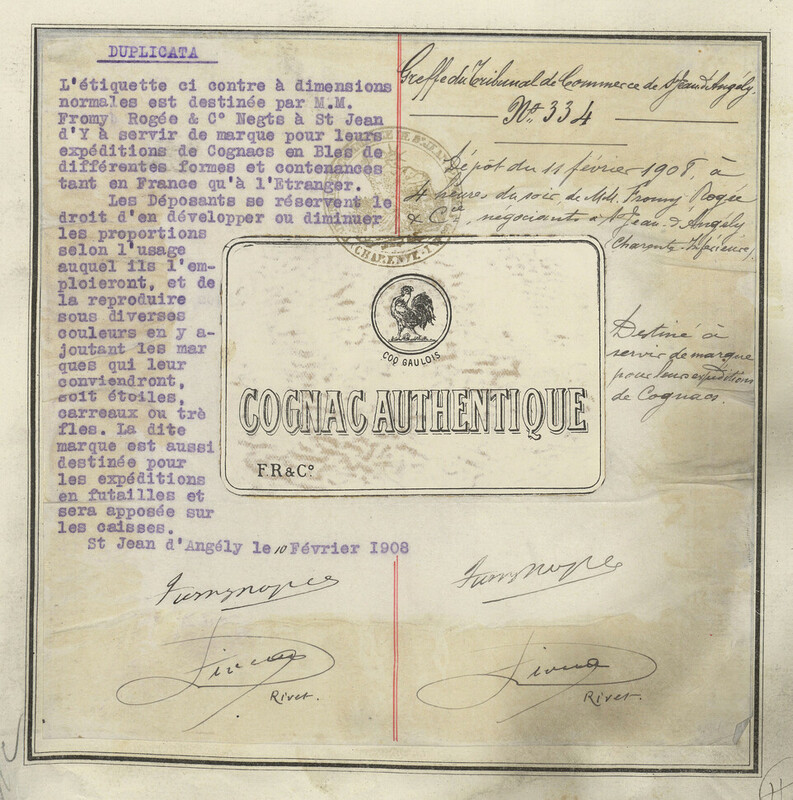 DUPLICATA
L'étiquette ci contre à dimensions
normales est destinée par M.M.
Fromy Rogée & C° Negts à St Jean
d'Y à servir de marque pour leurs
expéditions de Cognacs en Bles de
différentes formes et contenances
tant en France qu'à l'Etranger.
Les Déposants se réservent le
droit d'en développer ou diminuer
les proportions
selon l'usage
auquel ils l'em-
ploieront, et de
la reproduire
sous diverses
couleurs en y a-
joutant les mar
ques qui leur
conviendront,
soit étoiles,
carreaux ou trè
fles. La dite
marque est aussi
destinée pour
les expéditions
en futailles et
sera apposée sur
les caisses.
St Jean d'Angély le 10 Février 1908
Greffe du Tribunal de Commerce de St Jean d'Angély.
N° 334
Dépôt du 11 février 1908, à
4 heures du soir, de MM. Fromy Rogée
& Cie, négociants à St Jean d'Angély
Charente-Inférieure,
Destiné à
servir de marque
pour leurs expéditions
de Cognacs.
COQ GAULOIS
COGNAC AUTHENTIQUE
F.R & C°
Rivet.
Rivet.